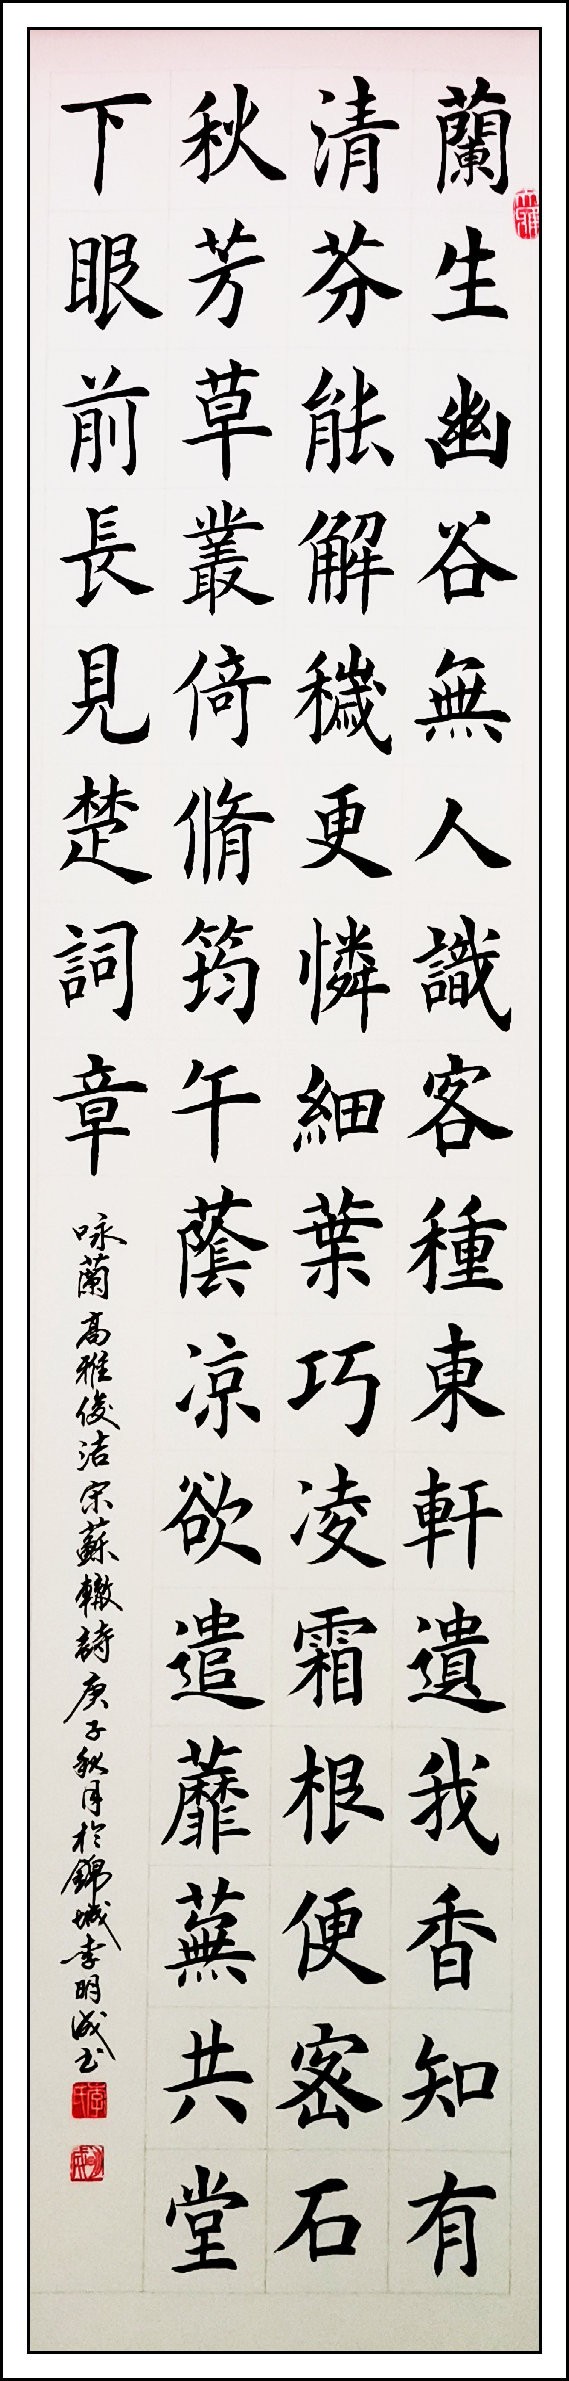 蘭生幽谷無人識客種東軒遺我香知有
清芬能解穢更憐細葉巧凌霜根便密石
秋芳草叢倚脩筠午蔭凉欲遣蘼蕪共堂
下眼前長見楚詞章
咏蘭高雅俊洁宋蘇轍詩庚子秋月於錦城李明成书